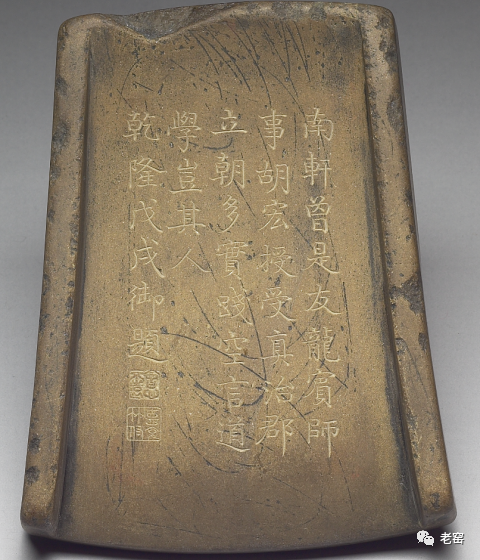 南軒曾是友龍賓師
事胡宏授受真治郡
立朝多實踐空言道
學豈其人
乾隆戊戌御題
老窑